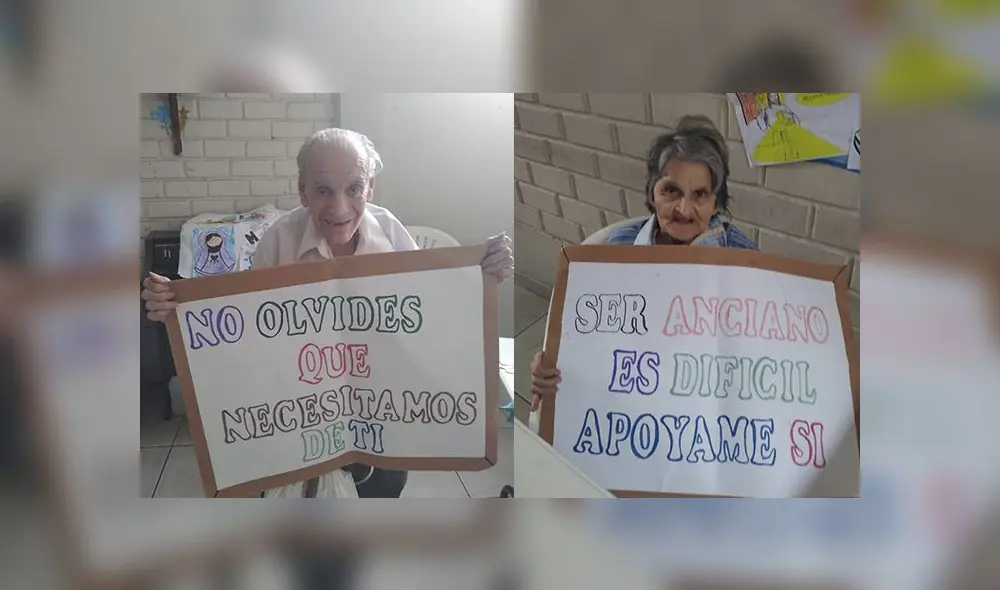 NO OLVIDES
QUE
NECESITAMOS
DE TI
SER ANCIANO
ES DIFICIL
APOYAME SI